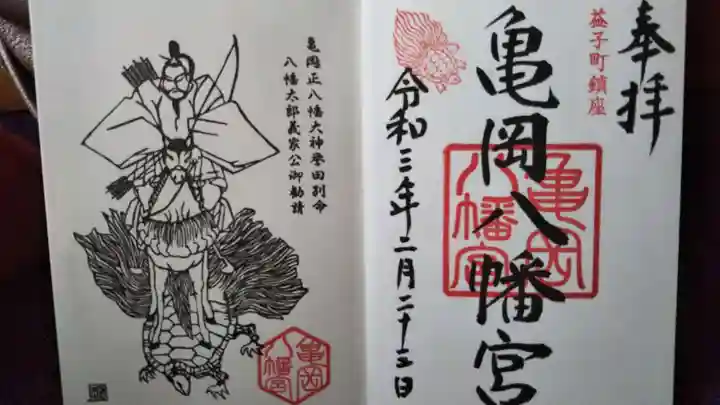 奉拝
益子町鎮座
亀岡八幡宮
亀岡
八幡宮
令和三年二月二十三日
亀岡正八幡大神誉田別命
八幡太郎義家公御勧請
亀岡
八幡宮